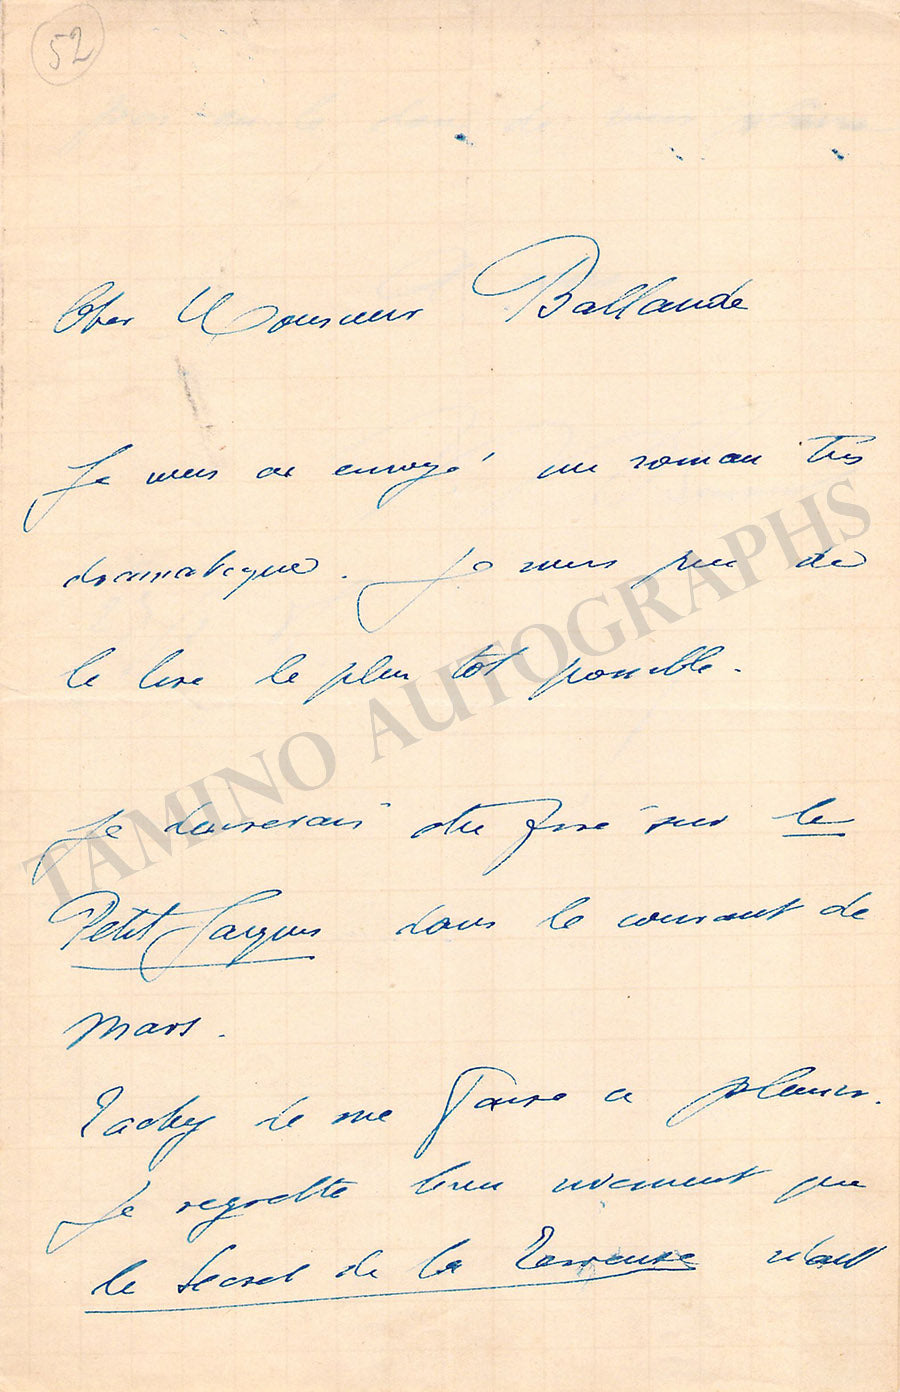 52
Cher Monsieur Ballande
Je vous ai envoyé un roman très
dramatique. Je vous prie de
le lire le plus tôt possible.
Je désirerais être fixé sur le
Petit Jacques dans le courant de
mars.
Tachez de me faire ce plaisir.
Je regrette bien vivement que
le Secret de la Terreuse
TAMINO AUTOGRAPHS